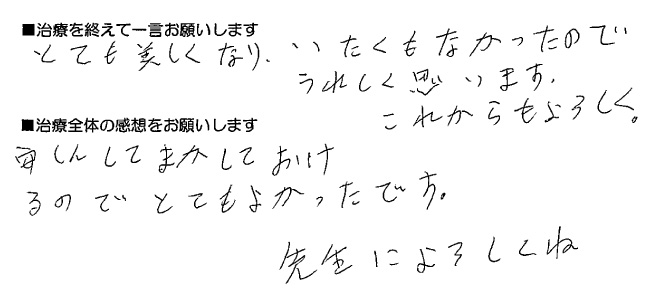 ■治療を終えて一言お願いします
とても美しくなり、いたくもなかったので
うれしく思います。
これからもよろしく。
■治療全体の感想をお願いします
安しんしてまかしておけ
るのでとてもよかったです。
先生によろしくね